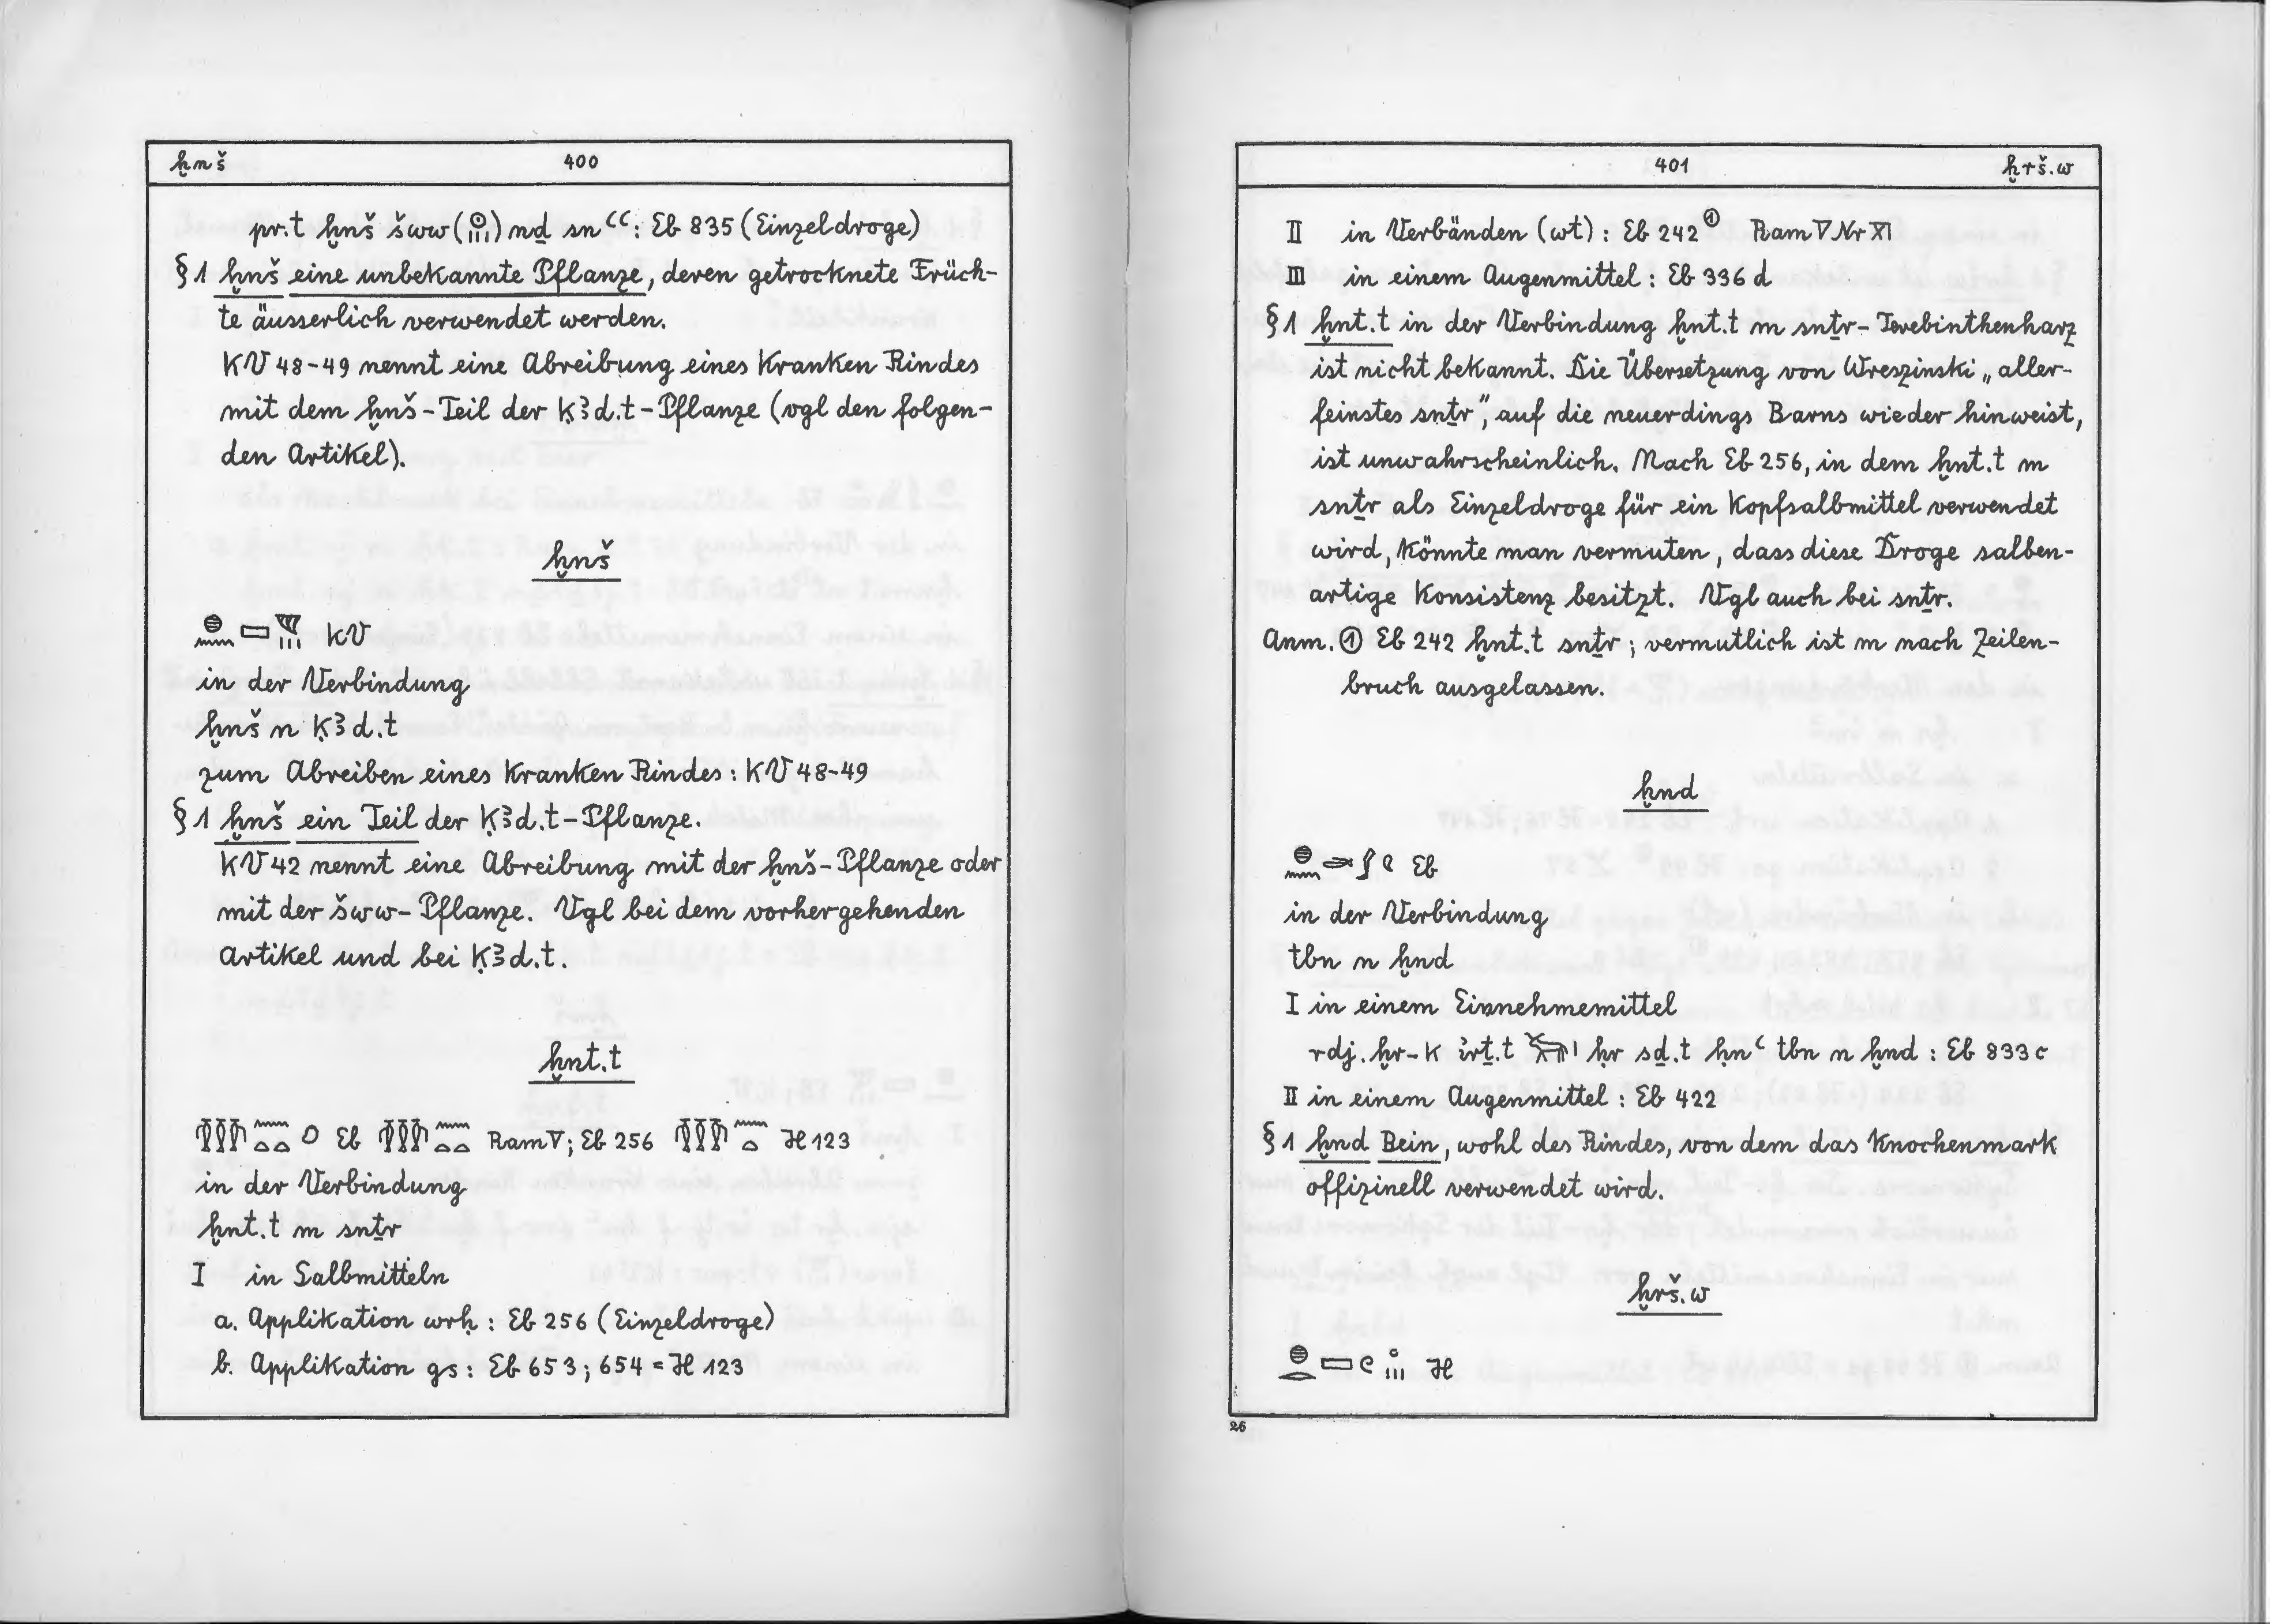 ḫnš 400
pr.t ḫnš šww (𓇳𓏥) nḏ snꜥꜥ : Eb 835 (Einzeldroge)
§ 1 ḫnš eine unbekannte Pflanze, deren getrocknete Früch-
te äusserlich verwendet werden.
KV 48-49 nennt eine Abreibung eines kranken Rindes
mit dem ḫnš-Teil der ḳꜣd.t-Pflanze (vgl den folgen-
den Artikel).
ḫnš
𓐍𓈖𓈙𓆰𓏥 KV
in der Verbindung
ḫnš n ḳꜣd.t
zum Abreiben eines kranken Rindes : KV 48-49
§ 1 ḫnš ein Teil der ḳꜣd.t-Pflanze.
KV 42 nennt eine Abreibung mit der ḫnš-Pflanze oder
mit der šww-Pflanze. Vgl bei dem vorhergehenden
Artikel und bei ḳꜣd.t.
ḫnt.t
𓏃𓈖𓏏𓏏 Eb 𓏃𓈖𓏏𓏏 Ram V; Eb 256 𓏃𓈖𓏏 H 123
in der Verbindung
ḫnt.t m snṯr
I in Salbmitteln
a. Applikation wrḥ : Eb 256 (Einzeldroge)
b. Applikation gs : Eb 653 ; 654 = H 123
401 ḫrš.w
II in Verbänden (wt) : Eb 242 ① Ram V Nr XI
III in einem Augenmittel : Eb 336 d
§ 1 ḫnt.t in der Verbindung ḫnt.t m snṯr - Terebinthenharz
ist nicht bekannt. Die Übersetzung von Wreszinski „aller-
feinstes snṯr", auf die neuerdings Barns wieder hinweist,
ist unwahrscheinlich. Nach Eb 256, in dem ḫnt.t m
snṯr als Einzeldroge für ein Kopfsalbmittel verwendet
wird, könnte man vermuten, dass diese Droge salben-
artige Konsistenz besitzt. Vgl auch bei snṯr.
Anm. ① Eb 242 ḫnt.t snṯr ; vermutlich ist m nach Zeilen-
bruch ausgelassen.
ḫnd
𓐍𓈖𓂧𓄹 Eb
in der Verbindung
tbn n ḫnd
I in einem Einnehmemittel
rdj.ḫr-k i͗rṯ.t 𓃒𓏤 ḥr sḏ.t ḥnꜥ tbn n ḫnd : Eb 833 c
II in einem Augenmittel : Eb 422
§ 1 ḫnd Bein, wohl des Rindes, von dem das Knochenmark
offizinell verwendet wird.
ḫrš.w
𓐍𓂋𓈙𓏲𓏥 H
26